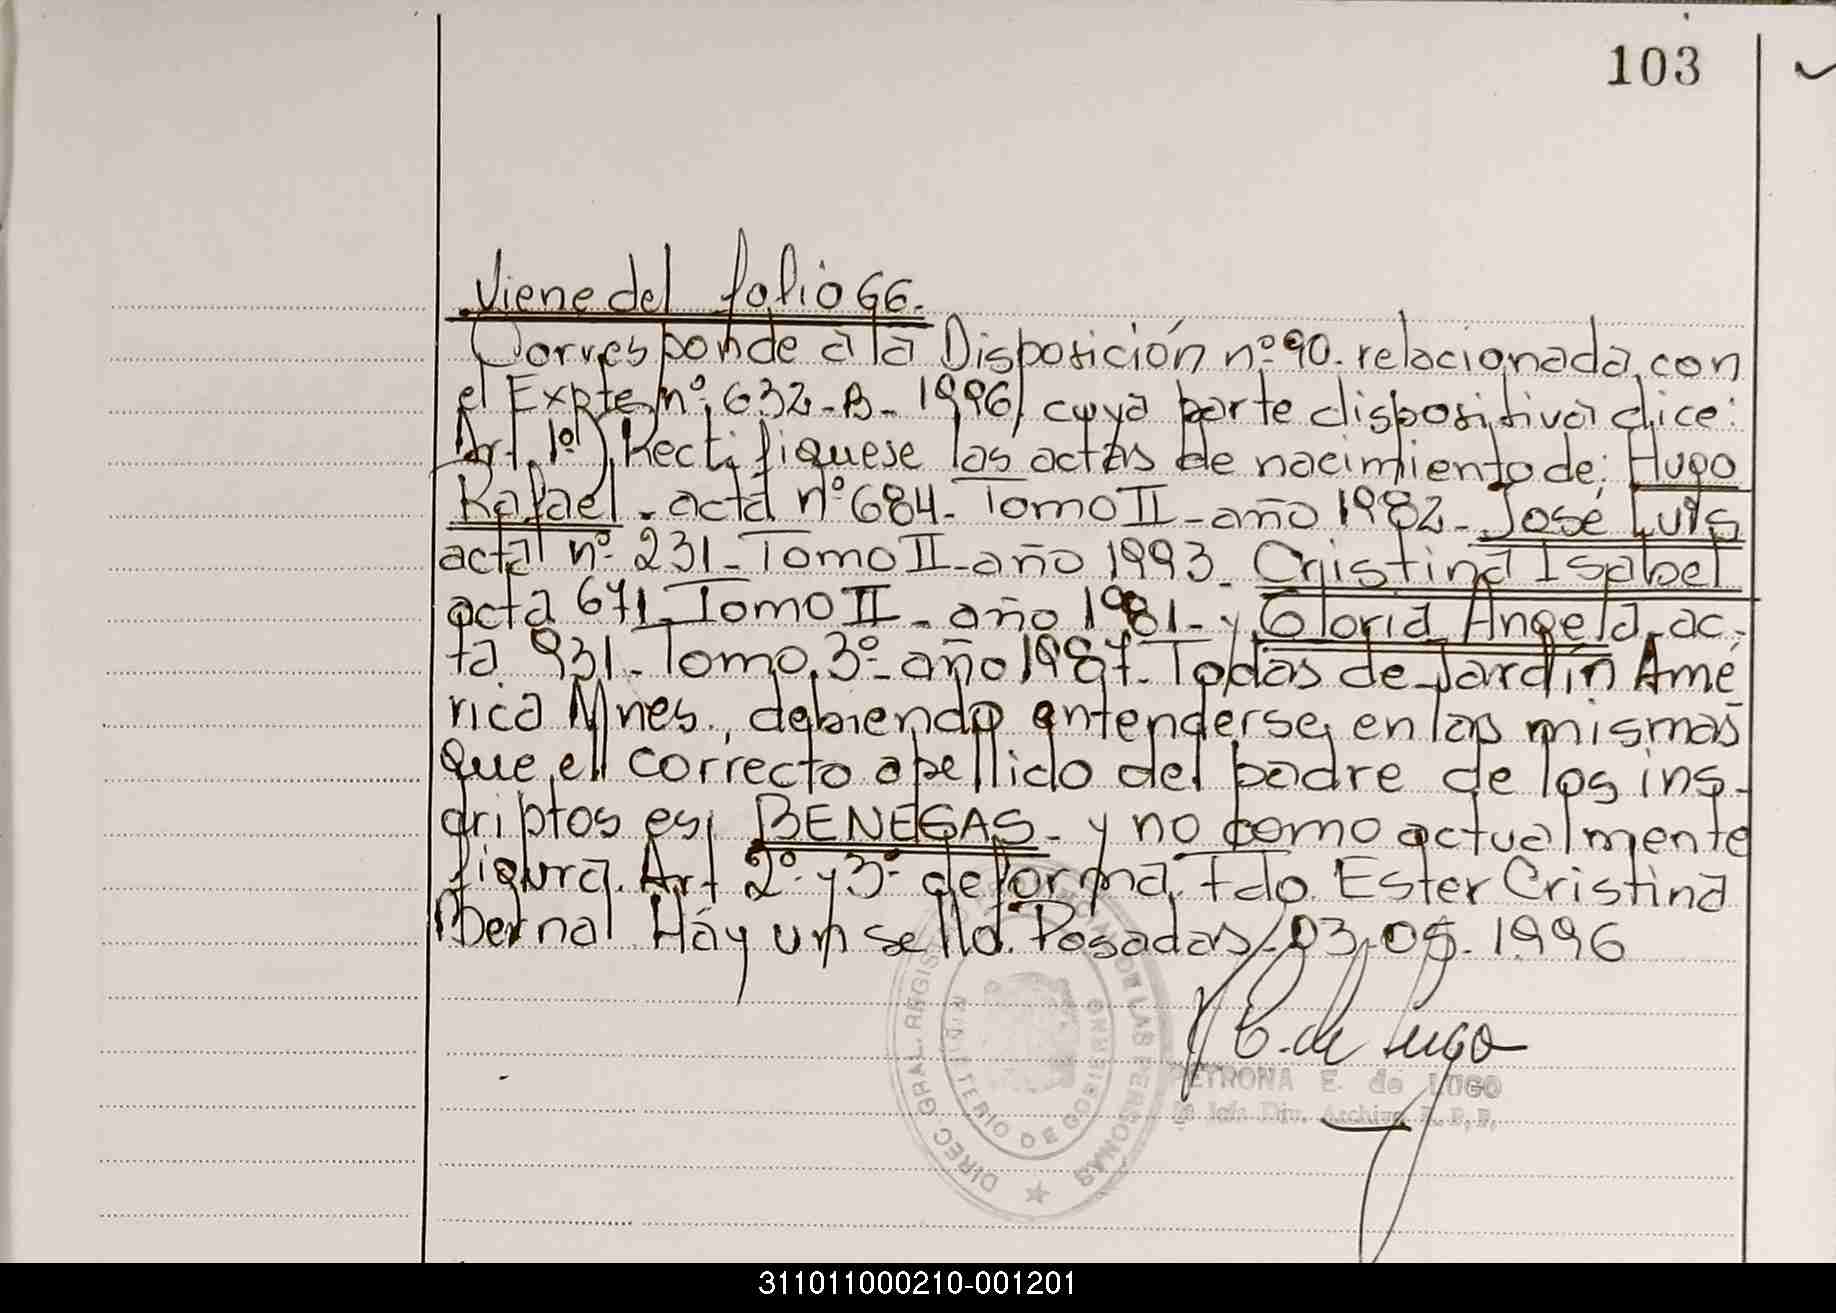 103
Viene del folio 66.
Corresponde a la Disposición nº 90. relacionada con
el Expte nº 632-B- 1996, cuya parte dispositiva dice:
Art. 1º) Rectifiquese las actas de nacimiento de: Hugo
Rafael - acta nº 684- Tomo II - año 1982- José Luis
acta nº 231- Tomo II - año 1993- Cristina Isabel
acta 671 Tomo II - año 1981- y Gloria Angela - ac-
ta 931- Tomo 3º- año 1987- Todas de Jardín Amé
rica Mnes., debiendo entenderse en las mismas
que el correcto apellido del padre de los ins-
criptos es: BENEGAS- y no como actualmente
figura. Art 2º y 3º de forma. Fdo. Ester Cristina
Bernal Hay un sello. Posadas, 03-05-1996
DIREC GRAL. REGIS DE LAS PERSONAS
MINISTERIO DE GOBIERNO
E. de Lugo
PETRONA E. de LUGO
Div. Archivo
311011000210-001201